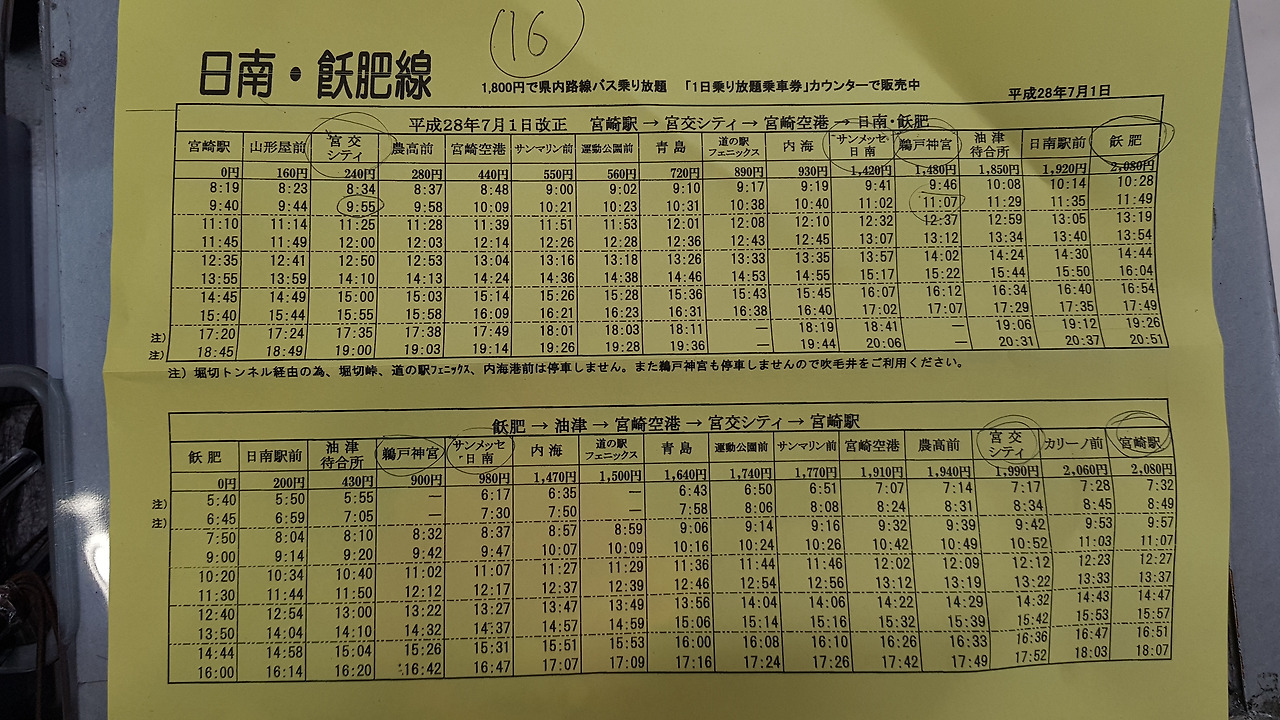 16
日南・飫肥線
1,800円で県内路線バス乗り放題 「1日乗り放題乗車券」カウンターで販売中
平成28年7月1日
平成28年7月1日改正 宮崎駅 → 宮交シティ → 宮崎空港 → 日南・飫肥
宮崎駅 山形屋前 宮交シティ 農高前 宮崎空港 サンマリン前 運動公園前 青島 道の駅フェニックス 内海 サンメッセ日南 鵜戸神宮 油津待合所 日南駅前 飫肥
0円 160円 240円 280円 440円 550円 560円 720円 890円 930円 1,420円 1,480円 1,850円 1,920円 2,080円
8:19 8:23 8:34 8:37 8:48 9:00 9:02 9:10 9:17 9:19 9:41 9:46 10:08 10:14 10:28
9:40 9:44 9:55 9:58 10:09 10:21 10:23 10:31 10:38 10:40 11:02 11:07 11:29 11:35 11:49
11:10 11:14 11:25 11:28 11:39 11:51 11:53 12:01 12:08 12:10 12:32 12:37 12:59 13:05 13:19
11:45 11:49 12:00 12:03 12:14 12:26 12:28 12:36 12:43 12:45 13:07 13:12 13:34 13:40 13:54
12:35 12:41 12:50 12:53 13:04 13:16 13:18 13:26 13:33 13:35 13:57 14:02 14:24 14:30 14:44
13:55 13:59 14:10 14:13 14:24 14:36 14:38 14:46 14:53 14:55 15:17 15:22 15:44 15:50 16:04
14:45 14:49 15:00 15:03 15:14 15:26 15:28 15:36 15:43 15:45 16:07 16:12 16:34 16:40 16:54
15:40 15:44 15:55 15:58 16:09 16:21 16:23 16:31 16:38 16:40 17:02 17:07 17:29 17:35 17:49
注) 17:20 17:24 17:35 17:38 17:49 18:01 18:03 18:11 — 18:19 18:41 — 19:06 19:12 19:26
注) 18:45 18:49 19:00 19:03 19:14 19:26 19:28 19:36 — 19:44 20:06 — 20:31 20:37 20:51
注）堀切トンネル経由の為、堀切峠、道の駅フェニックス、内海港前は停車しません。また鵜戸神宮も停車しませんので吹毛井をご利用ください。
飫肥 → 油津 → 宮崎空港 → 宮交シティ → 宮崎駅
飫肥 日南駅前 油津待合所 鵜戸神宮 サンメッセ・日南 内海 道の駅フェニックス 青島 運動公園前 サンマリン前 宮崎空港 農高前 宮交シティ カリーノ前 宮崎駅
0円 200円 430円 900円 980円 1,470円 1,500円 1,640円 1,740円 1,770円 1,910円 1,940円 1,990円 2,060円 2,080円
注) 5:40 5:50 5:55 — 6:17 6:35 — 6:43 6:50 6:51 7:07 7:14 7:17 7:28 7:32
注) 6:45 6:59 7:05 — 7:30 7:50 — 7:58 8:06 8:08 8:24 8:31 8:34 8:45 8:49
7:50 8:04 8:10 8:32 8:37 8:57 8:59 9:06 9:14 9:16 9:32 9:39 9:42 9:53 9:57
9:00 9:14 9:20 9:42 9:47 10:07 10:09 10:16 10:24 10:26 10:42 10:49 10:52 11:03 11:07
10:20 10:34 10:40 11:02 11:07 11:27 11:29 11:36 11:44 11:46 12:02 12:09 12:12 12:23 12:27
11:30 11:44 11:50 12:12 12:17 12:37 12:39 12:46 12:54 12:56 13:12 13:19 13:22 13:33 13:37
12:40 12:54 13:00 13:22 13:27 13:47 13:49 13:56 14:04 14:06 14:22 14:29 14:32 14:43 14:47
13:50 14:04 14:10 14:32 14:37 14:57 14:59 15:06 15:14 15:16 15:32 15:39 15:42 15:53 15:57
14:44 14:58 15:04 15:26 15:31 15:51 15:53 16:00 16:08 16:10 16:26 16:33 16:36 16:47 16:51
16:00 16:14 16:20 16:42 16:47 17:07 17:09 17:16 17:24 17:26 17:42 17:49 17:52 18:03 18:07